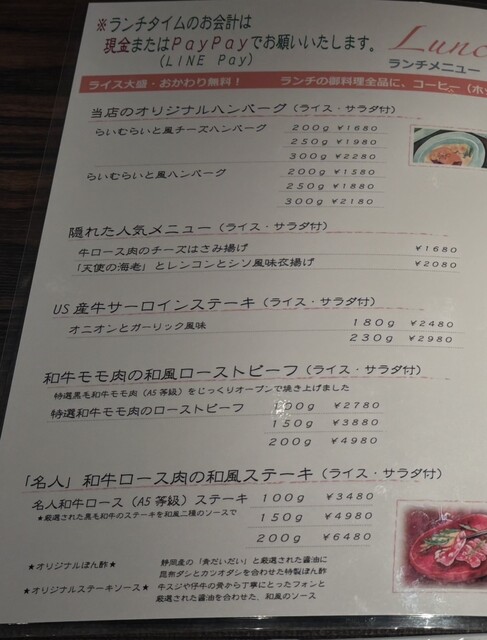 ※ランチタイムのお会計は
現金またはPayPayでお願いいたします。
(LINE Pay)
Lunc
ランチメニュー
ライス大盛・おかわり無料！ ランチの御料理全品に、コーヒー（ホッ
当店のオリジナルハンバーグ（ライス・サラダ付）
らいむらいと風チーズハンバーグ 200g ¥1680
250g ¥1980
300g ¥2280
らいむらいと風ハンバーグ 200g ¥1580
250g ¥1880
300g ¥2180
隠れた人気メニュー（ライス・サラダ付）
牛ロース肉のチーズはさみ揚げ ¥1680
「天使の海老」とレンコンとシソ風味衣揚げ ¥2080
US産牛サーロインステーキ（ライス・サラダ付）
オニオンとガーリック風味 180g ¥2480
230g ¥2980
和牛モモ肉の和風ローストビーフ（ライス・サラダ付）
特選黒毛和牛モモ肉（A5等級）をじっくりオーブンで焼き上げました
特選和牛モモ肉のローストビーフ 100g ¥2780
150g ¥3880
200g ¥4980
「名人」和牛ロース肉の和風ステーキ（ライス・サラダ付）
名人和牛ロース（A5等級）ステーキ 100g ¥3480
★厳選された黒毛和牛のステーキを和風二種のソースで
150g ¥4980
200g ¥6480
★オリジナルぽん酢★ 静岡産の「黄だいだい」と厳選された醤油に
昆布ダシとカツオダシを合わせた特製ぽん酢
★オリジナルステーキソース★ 牛スジや仔牛の骨から丁寧にとったフォンと
厳選された醤油を合わせた、和風のソース